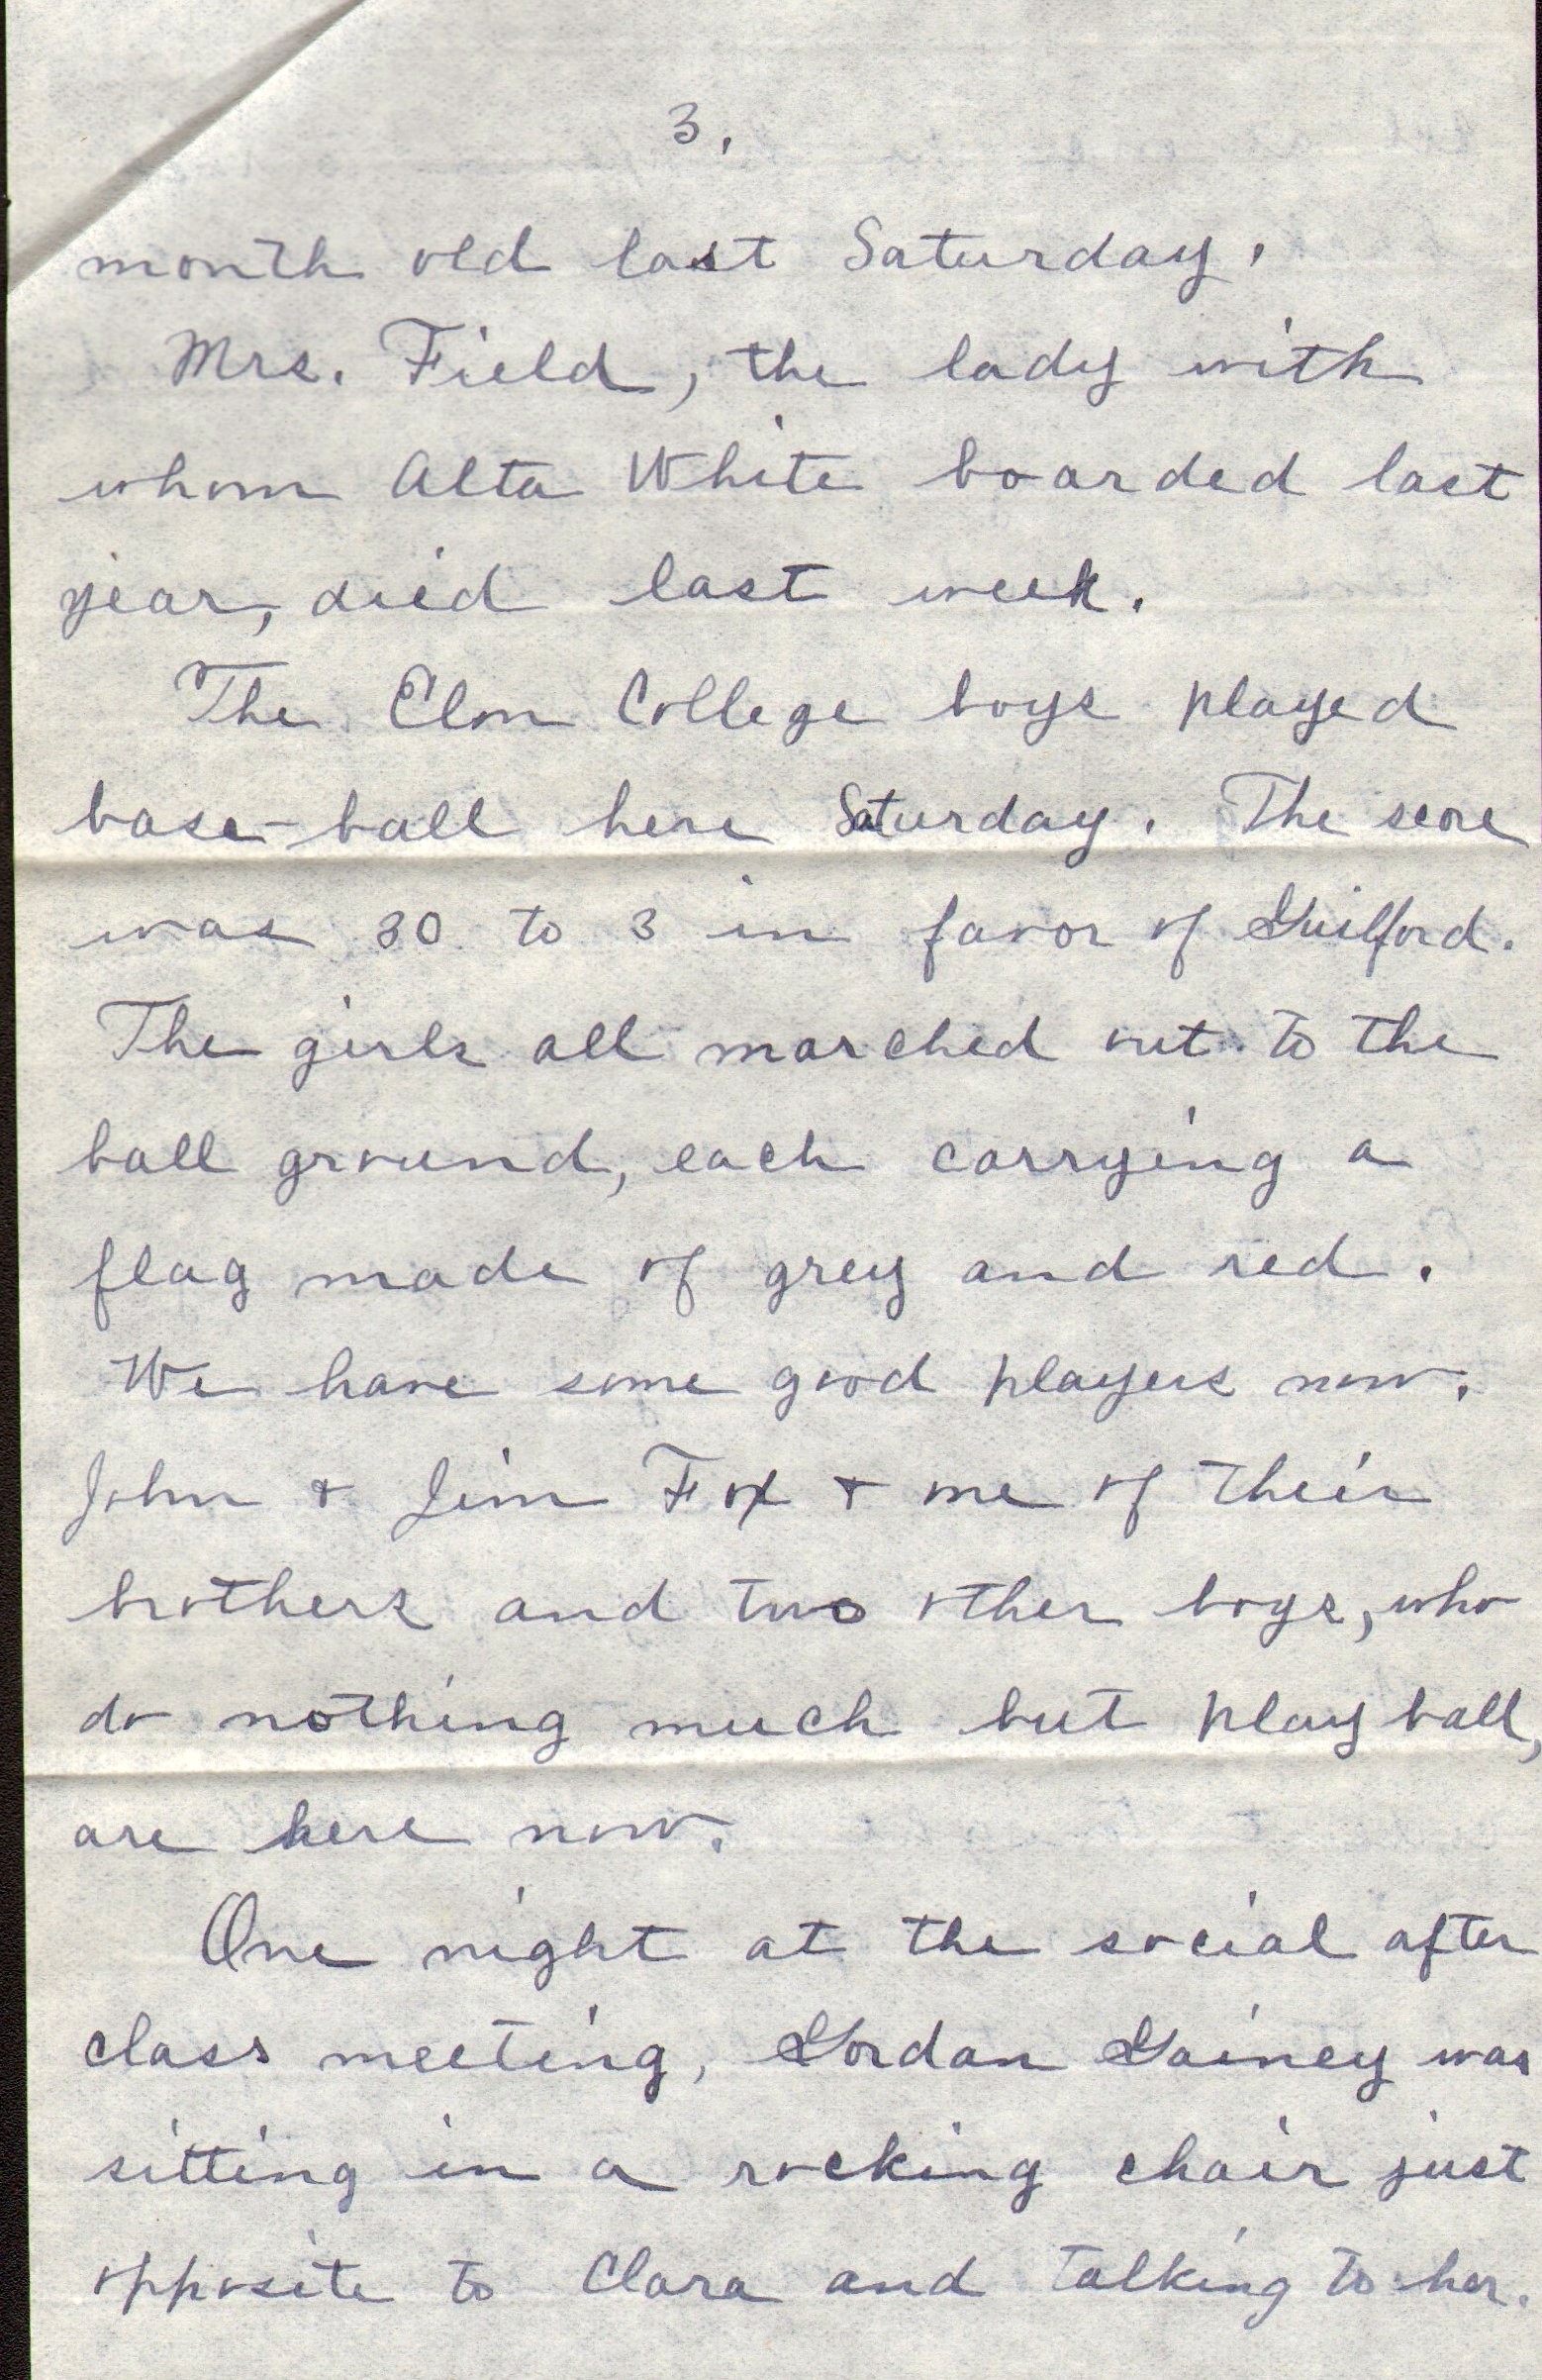 3.
month old last Saturday.
Mrs. Field, the lady with
whom Alta White boarded last
year, died last week.
The Elon College boys played
base-ball here Saturday. The score
was 30 to 3 in favor of Guilford.
The girls all marched out to the
ball ground, each carrying a
flag made of grey and red.
We have some good players now.
John & Jim Fox & one of their
brothers and two other boys, who
do nothing much but play ball,
are here now.
One night at the social after
class meeting, Gordan Gainey was
sitting in a rocking chair just
opposite to Clara and talking to her.